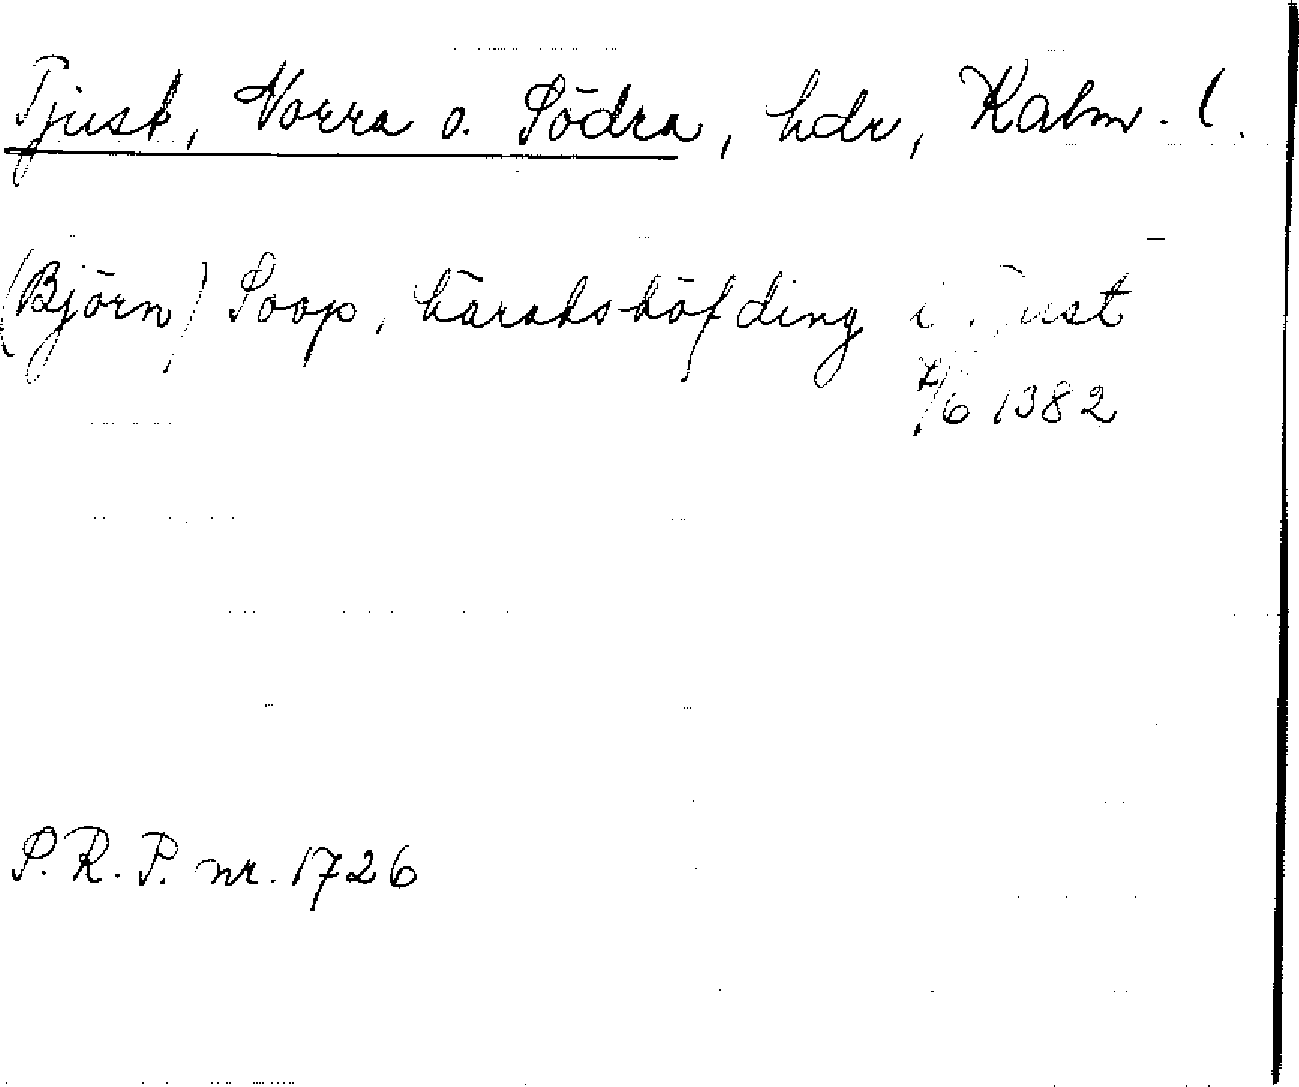 Tjust, Norra o. Södra, hdr, Kalm. l.
(Björn) Soop, häradshöfding i Just
7/6 1382
S.R.P. nr. 1726